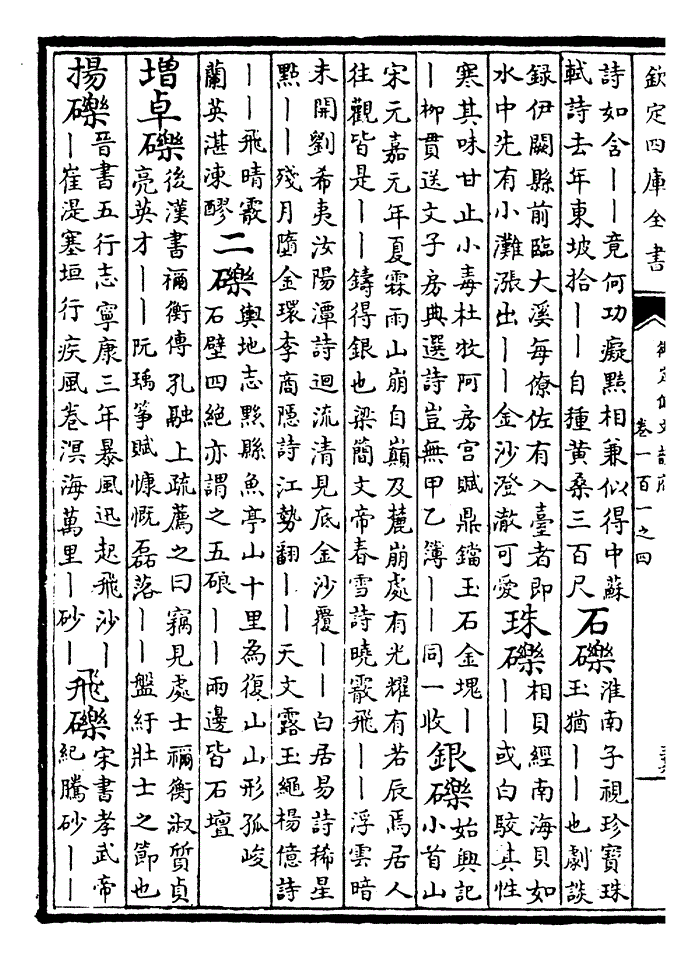 欽定四庫全書
御定佩文韻府
卷一百一之四
詩如含丨丨竟何功癡黠相兼似得中蘇
軾詩去年東坡拾丨丨自種黄桑三百尺
石礫
淮南子視珍寶珠
玉猶丨丨也劇談
録伊闕縣前臨大溪每僚佐有入臺者即
水中先有小灘漲出丨丨金沙澄澈可愛
珠礫
相貝經南海貝如
丨丨或白駮其性
寒其味甘止小毒杜牧阿房宫賦鼎鐺玉石金塊丨
丨柳貫送文子房典選詩豈無甲乙簿丨丨同一收
銀礫
始興記
小首山
宋元嘉元年夏霖雨山崩自巔及麓崩處有光耀有若辰焉居人
往觀皆是丨丨鑄得銀也梁簡文帝春雪詩曉霰飛丨丨浮雲暗
未開劉希夷汝陽潭詩迴流清見底金沙覆丨丨白居易詩稀星
點丨丨殘月墮金環李商隱詩江勢翻丨丨天文露玉繩楊億詩
丨丨飛晴霰
蘭英湛凍醪
二礫
輿地志黟縣魚亭山十里為復山山形孤峻
石壁四絶亦謂之五硠丨丨兩邊皆石壇
増卓礫
後漢書禰衡傳孔融上疏薦之曰竊見處士禰衡淑質貞
亮英才丨丨阮瑀箏賦慷慨磊落丨丨盤紆壯士之節也
揚礫
晉書五行志寧康三年暴風迅起飛沙丨
丨崔湜塞垣行疾風卷溟海萬里丨砂丨
飛礫
宋書孝武帝
紀騰砂丨丨